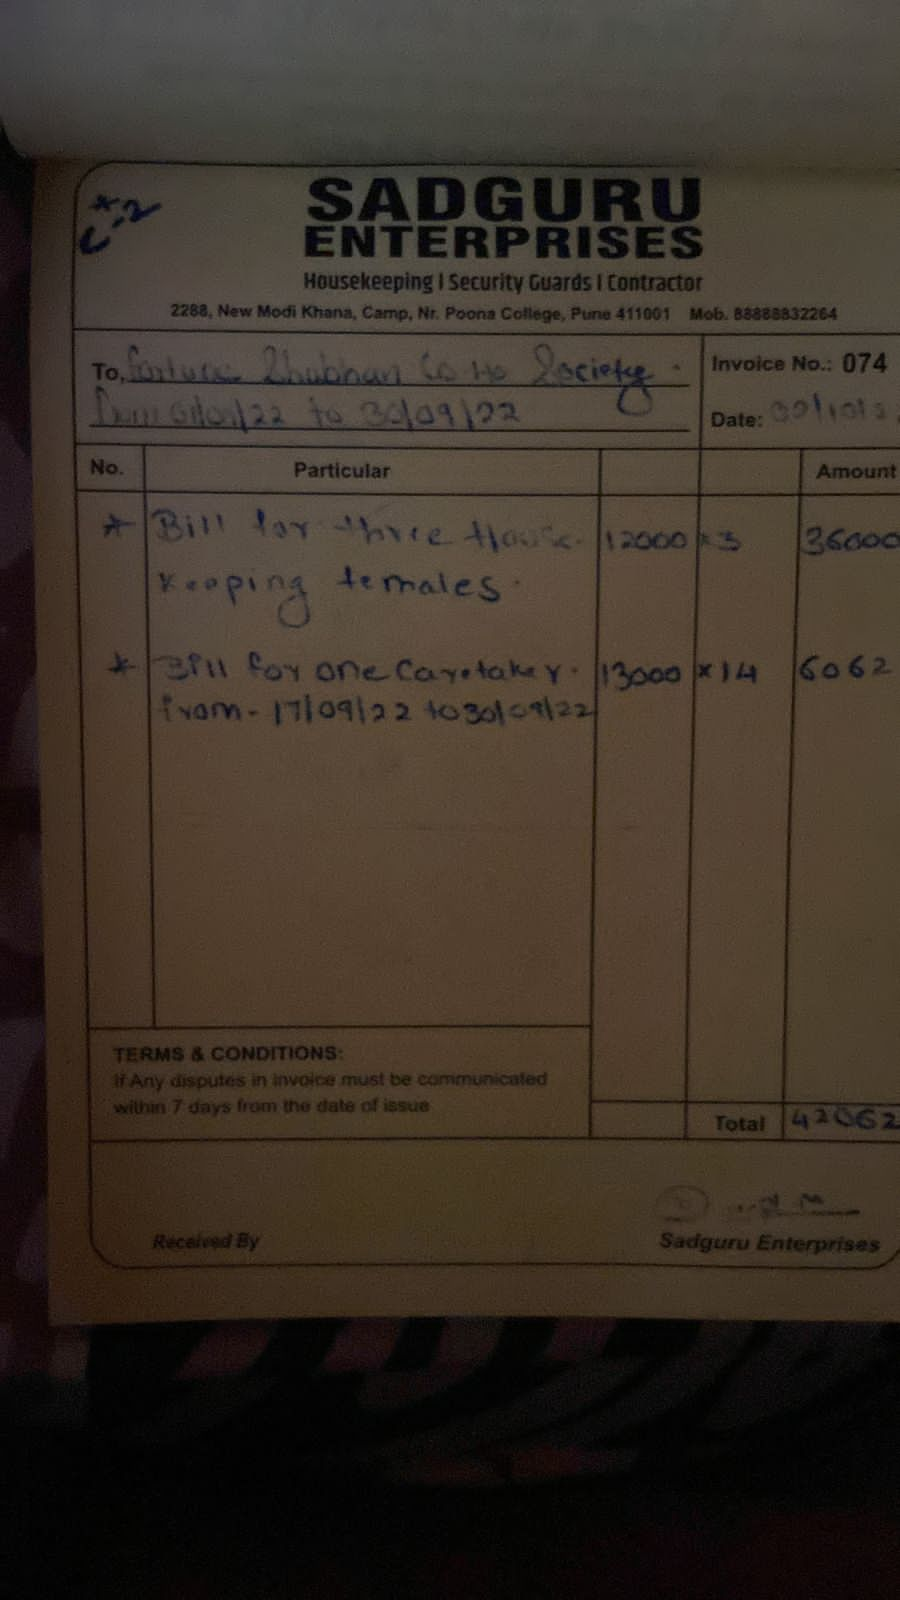 * C-2
SADGURU
ENTERPRISES
Housekeeping | Security Guards | Contractor
2288, New Modi Khana, Camp, Nr. Poona College, Pune 411001 Mob. 88888832264
To, Co Ho Society.
From 01/09/22 to 30/09/22
Invoice No.: 074
Date:
No. Particular Amount
* Bill for three House- 12000 × 3 36000
keeping females.
* Bill for one Caretaker. 13000 × 14 6062
from - 17/09/22 to 30/09/22
TERMS & CONDITIONS:
If Any disputes in invoice must be communicated
within 7 days from the date of issue
Total 42062
Received By
Sadguru Enterprises